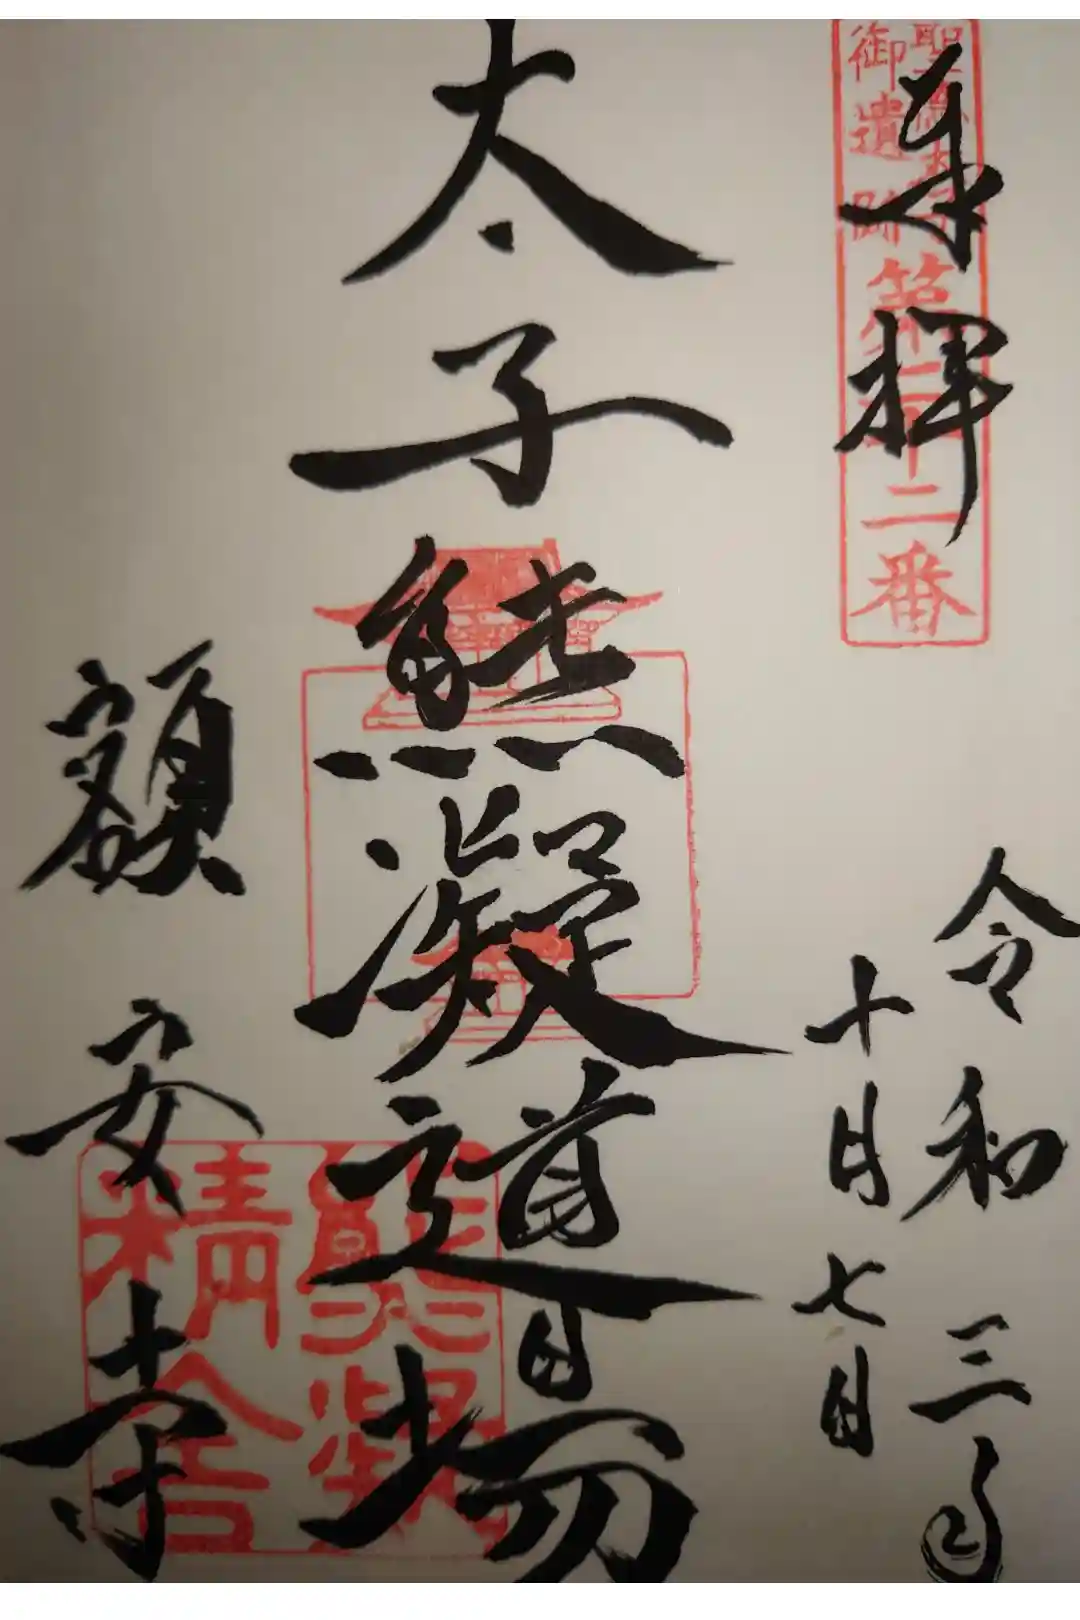 奉拝
聖徳太子
御遺跡
第二十二番
令和三年
十月七日
太子熊凝道場
熊凝
精舎
額安寺